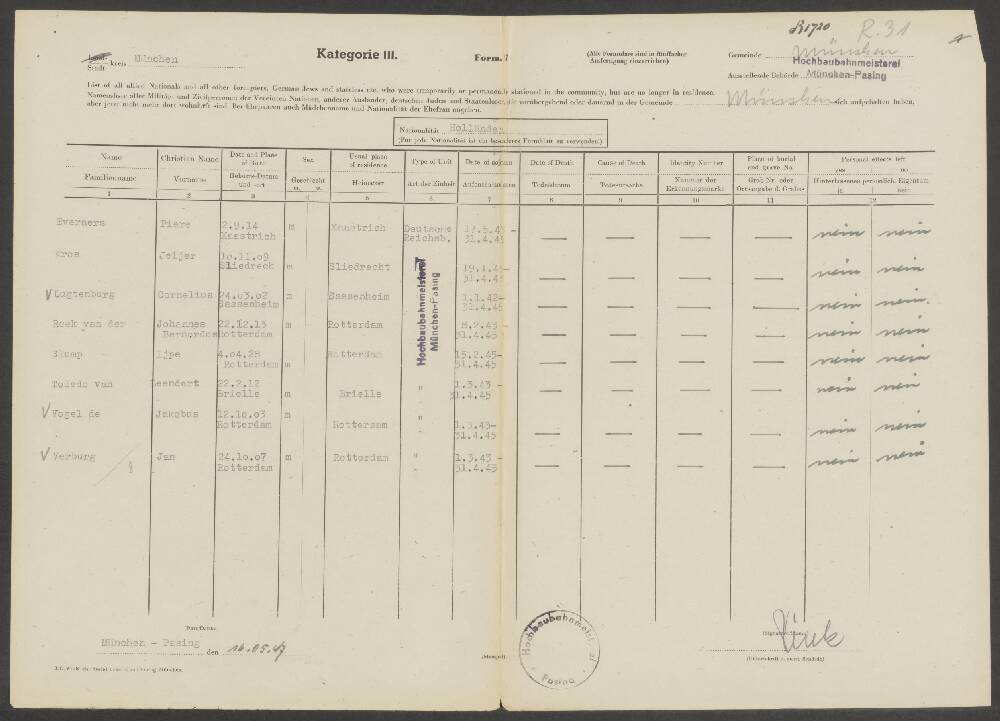 R1720 R.31
Land-
Stadt- kreis München
Kategorie III.
Form. 7
(Alle Formulare sind in fünffacher
Ausfertigung einzureichen)
Gemeinde München
Hochbaubahnmeisterei
Ausstellende Behörde München-Pasing
List of all allied Nationals and all other foreigners, German Jews and stateless etc. who were temporarily or permanently stationed in the community, but are no longer in residence.
Namensliste aller Militär- und Zivilpersonen der Vereinten Nationen, anderer Ausländer, deutscher Juden und Staatenloser, die vorübergehend oder dauernd in der Gemeinde München sich aufgehalten haben,
aber jetzt nicht mehr dort wohnhaft sind. Bei Ehepaaren auch Mädchenname und Nationalität der Ehefrau angeben.
Nationalität Holländer
(Für jede Nationalität ist ein besonderes Formblatt zu verwenden)
Name Christian Name Date and Place of Birth Sex Usual place of residence Type of Unit Date of sojourn Date of Death Cause of Death Identity Number Place of burial and grave No. Personal effects left yes no
Familienname Vorname Geburts-Datum und -ort Geschlecht m. w. Heimatort Art der Einheit Aufenthaltsdaten Todesdatum Todesursache Nummer der Erkennungsmarke Grab Nr. oder Ortsangabe d. Grabes Hinterlassenes persönlich. Eigentum ja nein
1 2 3 4 5 6 7 8 9 10 11 12
Everaers Piere 2.9.14 m Maastrich Deutsche 17.5.43 - — — — — nein nein
Maastrich Reichsb. 31.4.45
Kros Teijer 10.11.09 Hochbaubahnmeisterei
Sliedrech m Sliedrecht München-Pasing 19.1.45- — — — — nein nein
31.4.45
V Lugtenburg Cornelius 24.03.02 m Sassenheim 1.1.42- — — — — nein nein.
Sassenheim 31.4.45
Roek van der Johannes 22.12.13 m Rotterdam 8.2.43 - — — — — nein nein
Bernardus Rotterdam 31.4.45
Slomp Ijpe 4.04.28 Rotterdam 15.2.45- — — — — nein nein
Rotterdam m 31.4.45
Toledo van Leendert 22.2.12 " 1.3.43 - — — — — nein nein
Brielle m Brielle 31.4.45
V Vogel de Jakobus 12.10.03 m "
Rotterdam Rotterdam 1.3.43- — — — — nein nein
31.4.45
V Verburg Jan 24.10.07 m Rotterdam " 1.3.43 - — — — — nein nein
8 Rotterdam 31.4.45
München - Pasing den 16.05.47
(Stempel)
Hochbaubahnmeisterei
Pasing